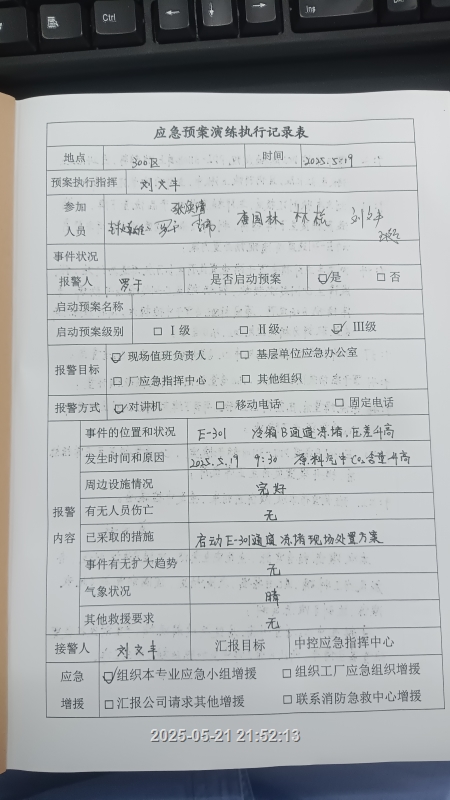 Ctrl
应急预案演练执行记录表
地点 300区 时间 2025.5.19
预案执行指挥 刘文丰
参加人员 唐国林 林 刘
事件状况
报警人 罗干 是否启动预案 ☑是 □否
启动预案名称
启动预案级别 □Ⅰ级 □Ⅱ级 ☑Ⅲ级
报警目标 ☑现场值班负责人 □基层单位应急办公室
□厂应急指挥中心 □其他组织
报警方式 ☑对讲机 □移动电话 □固定电话
报警内容
事件的位置和状况 E-301 冷箱B通道冻堵,压差升高
发生时间和原因 2025.5.19 9:30 原料气中CO₂含量升高
周边设施情况 完好
有无人员伤亡 无
已采取的措施 启动E-301通道冻堵现场处置方案
事件有无扩大趋势 无
气象状况 晴
其他救援要求 无
接警人 刘文丰 汇报目标 中控应急指挥中心
应急增援 ☑组织本专业应急小组增援 □组织工厂应急组织增援
□汇报公司请求其他增援 □联系消防急救中心增援
2025-05-21 21:52:13